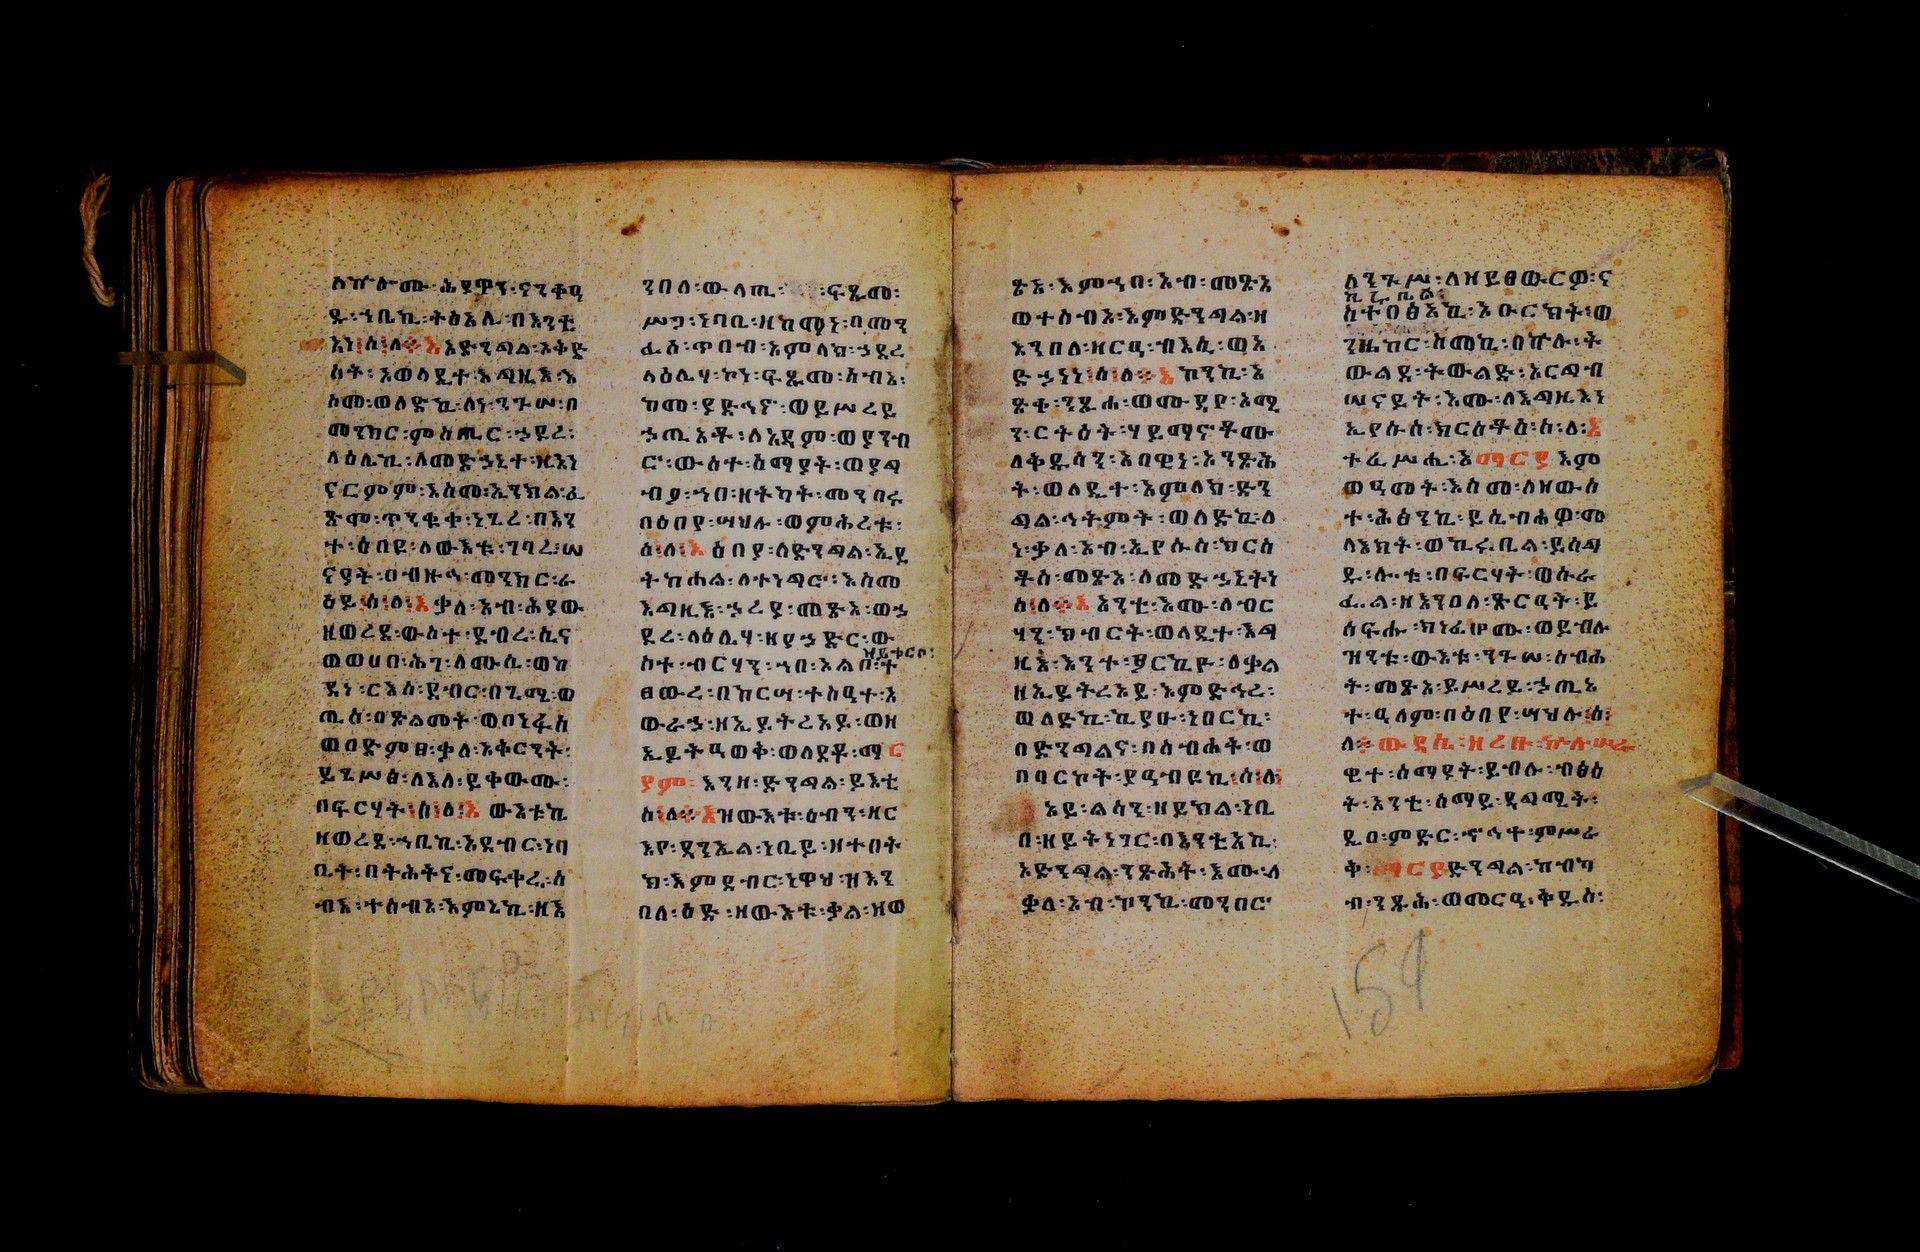 ለኵሎሙ፡ሕያዋን፡ናንቄዲ
ዳ፡ኀቤኪ፡ትዕእሌ፡በእንቲ
እነ፡ሰ፡ለ፡እ፡እድንግል፡እቅድ
ስት፡እወላዲተ፡እግዚእ፡እ
ስመ፡ወለድኪ፡ለነ፡ንጉሠ፡በ
መንክር፡ምስጢር፡ኃደረ፡
ላዕሌኪ፡ለመድኃኒተ፡ዚእነ
ናርምም፡እስመ፡ኢንክል፡ፈ
ጽሞ፡ጥንቁቀ፡ነጊረ፡በእን
ተ፡ዕበይ፡ለውእቱ፡ገባሬ፡ሠ
ናያት፡በብዙኅ፡መንክር፡ራ
ዕይ፡ሰ፡ለ፡እ፡ቃለ፡እብ፡ሕያው
ዘወረደ፡ውስተ፡ደብረ፡ሲና
ወወሀበ፡ሕገ፡ለሙሴ፡ወከ
ደነ፡ርእሰ፡ደብር፡በጊሜ፡ወ
ጢስ፡በጽልመት፡ወበነፋስ
ወበድምፀ፡ቃለ፡አቅርንት፡
ይጌሥፅ፡ለእለ፡ይቀውሙ፡
በፍርሃት፡ሰ፡ለ፡እ፡ውእቱኬ
ዘወረደ፡ኀቤኪ፡እደብር፡ነባ
ቢት፡በትሕትና፡መፍቀሬ፡ሰ
ብእ፡ተሰብአ፡እምኔኪ፡ዘእ
ንበለ፡ውላጤ፡፡ፍጹመ፡
ሥጋ፡ነባቢ፡ዘከማነ፡በመን
ፈስ፡ጥበብ፡አምላክ፡ኃደረ
ላዕሌሃ፡ኮነ፡ፍጹመ፡ሰብእ፡
ከመ፡ያድኅኖ፡ወይሥረይ
ኃጢአቶ፡ለአዳም፡ወያንብ
ሮ፡ውስተ፡ሰማያት፡ወያግ
ብኦ፡ኀበ፡ዘትካት፡መንበሩ
በዕበየ፡ሣህሉ፡ወምሕረቱ፡
ሰ፡ለ፡እ፡ዕበያ፡ለድንግል፡ኢይ
ትከሐል፡ለተነግሮ፡እስመ
እግዚእ፡ኃረያ፡መጽአ፡ወኃ
ደረ፡ላዕሌሃ፡ዘየኃድር፡ው
ዘይቀርቦ፡
ስተ፡ብርሃን፡ኀበ፡አልቦ፡ተ
ፀውረ፡በከርሣ፡ተስዓተ፡እ
ውራኃ፡ዘኢይትረአይ፡ወዘ
ኢይትዓወቅ፡ወለደቶ፡ማር
ያም፡እንዘ፡ድንግል፡ይእቲ
ሰ፡ለ፡እ፡ዝውእቱ፡ዕብን፡ዘር
እየ፡ዳንኤል፡ነቢይ፡ዘተበት
ከ፡እምደብር፡ነዋኅ፡ዝእን
በለ፡ዕድ፡ዘውእቱ፡ቃል፡ዘወ
ጽአ፡እምኀበ፡አብ፡መጽአ
ወተሰብአ፡እምድንግል፡ዘ
እንበለ፡ዘርዒ፡ብእሲ፡ወአ
ድኃነነ፡ሰ፡ለ፡እ፡ኮንኪ፡አ
ጽቀ፡ንጹሐ፡ወሙዳየ፡አሚ
ን፡ርትዕት፡ሃይማኖቶሙ
ለቅዱሳን፡አበዊነ፡እንጽሕ
ት፡ወላዲተ፡እምላክ፡ድን
ግል፡ኅትምት፡ወለድኪ፡ለ
ነ፡ቃለ፡እብ፡ኢየሱስ፡ክርስ
ቶስ፡መጽአ፡ለመድኃኒትነ
ሰ፡ለ፡እ፡እንቲ፡እሙ፡ለብር
ሃን፡ክብርት፡ወላዲተ፡እግ
ዚእ፡እንተ፡ፆርኪዮ፡ለቃል
ዘኢይትረአይ፡እምድኅረ፡
ወለድኪ፡ኪያሁ፡ነበርኪ፡
በድንግልና፡በስብሐት፡ወ
በባርኮት፡ያዓብዩኪ፡ሰ፡ለ፡
አይ፡ልሳን፡ዘይክል፡ነቢ
በ፡ዘይትነገር፡በእንቲአኪ፡
እድንግል፡ንጽሕት፡እሙ፡ለ
ቃለ፡እብ፡ኮንኪ፡መንበር
ለንጉሥ፡ለዘይፀውርዎ፡ና
ኪሩቤል፡
ስተበፅአኪ፡እቡርክት፡ወ
ንዜከር፡ስመኪ፡በኵሉ፡ት
ውልደ፡ትውልድ፡እርግብ
ሠናይት፡እሙ፡ለእግዚእነ
ኢየሱስ፡ክርስቶስ፡ሰ፡ለ፡እ
ተፈሥሒ፡እማርያእም
ወዓመት፡እስመ፡ለዘውስ
ተ፡ሕፅንኪ፡ይሴብሐዎ፡መ
ላእክት፡ወኪሩቤል፡ይሰግ
ዱ፡ሎቱ፡በፍርሃት፡ወሱራ
ፌል፡ዘእንበለ፡ጽርዓት፡ይ
ሰፍሑ፡ክነፊሆሙ፡ወይብሉ
ዝንቱ፡ውእቱ፡ንጉሠ፡ስብሐ
ት፡መጽአ፡ይሥረይ፡ኃጢአ
ተ፡ዓለም፡በዕበየ፡ሣህሉ፡ሰ፡
ለ፡ውዳሴ፡ዘረቡ፡ኵሉ፡ሠራ
ዊተ፡ሰማያት፡ይብሉ፡ብፅዕ
ት፡እንቲ፡ሰማይ፡ዳግሚት፡
ዲበ፡ምድር፡ኆኅተ፡ምሥራ
ቅ፡ማርያድንግል፡ከብካ
ብ፡ንጹሕ፡ወመርዓ፡ቅዱስ፡
154